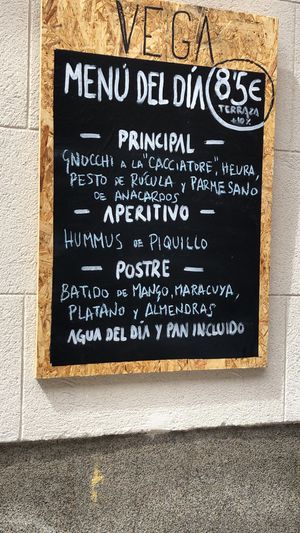 VEGA
MENÚ DEL DÍA 8'5€
TERRAZA
+10%
— PRINCIPAL —
GNOCCHI A LA "CACCIATORE", HEURA,
PESTO DE RÚCULA Y PARMESANO
DE ANACARDOS
— APERITIVO —
HUMMUS DE PIQUILLO
— POSTRE —
BATIDO DE MANGO, MARACUYA,
PLATANO Y ALMENDRAS
AGUA DEL DÍA Y PAN INCLUIDO